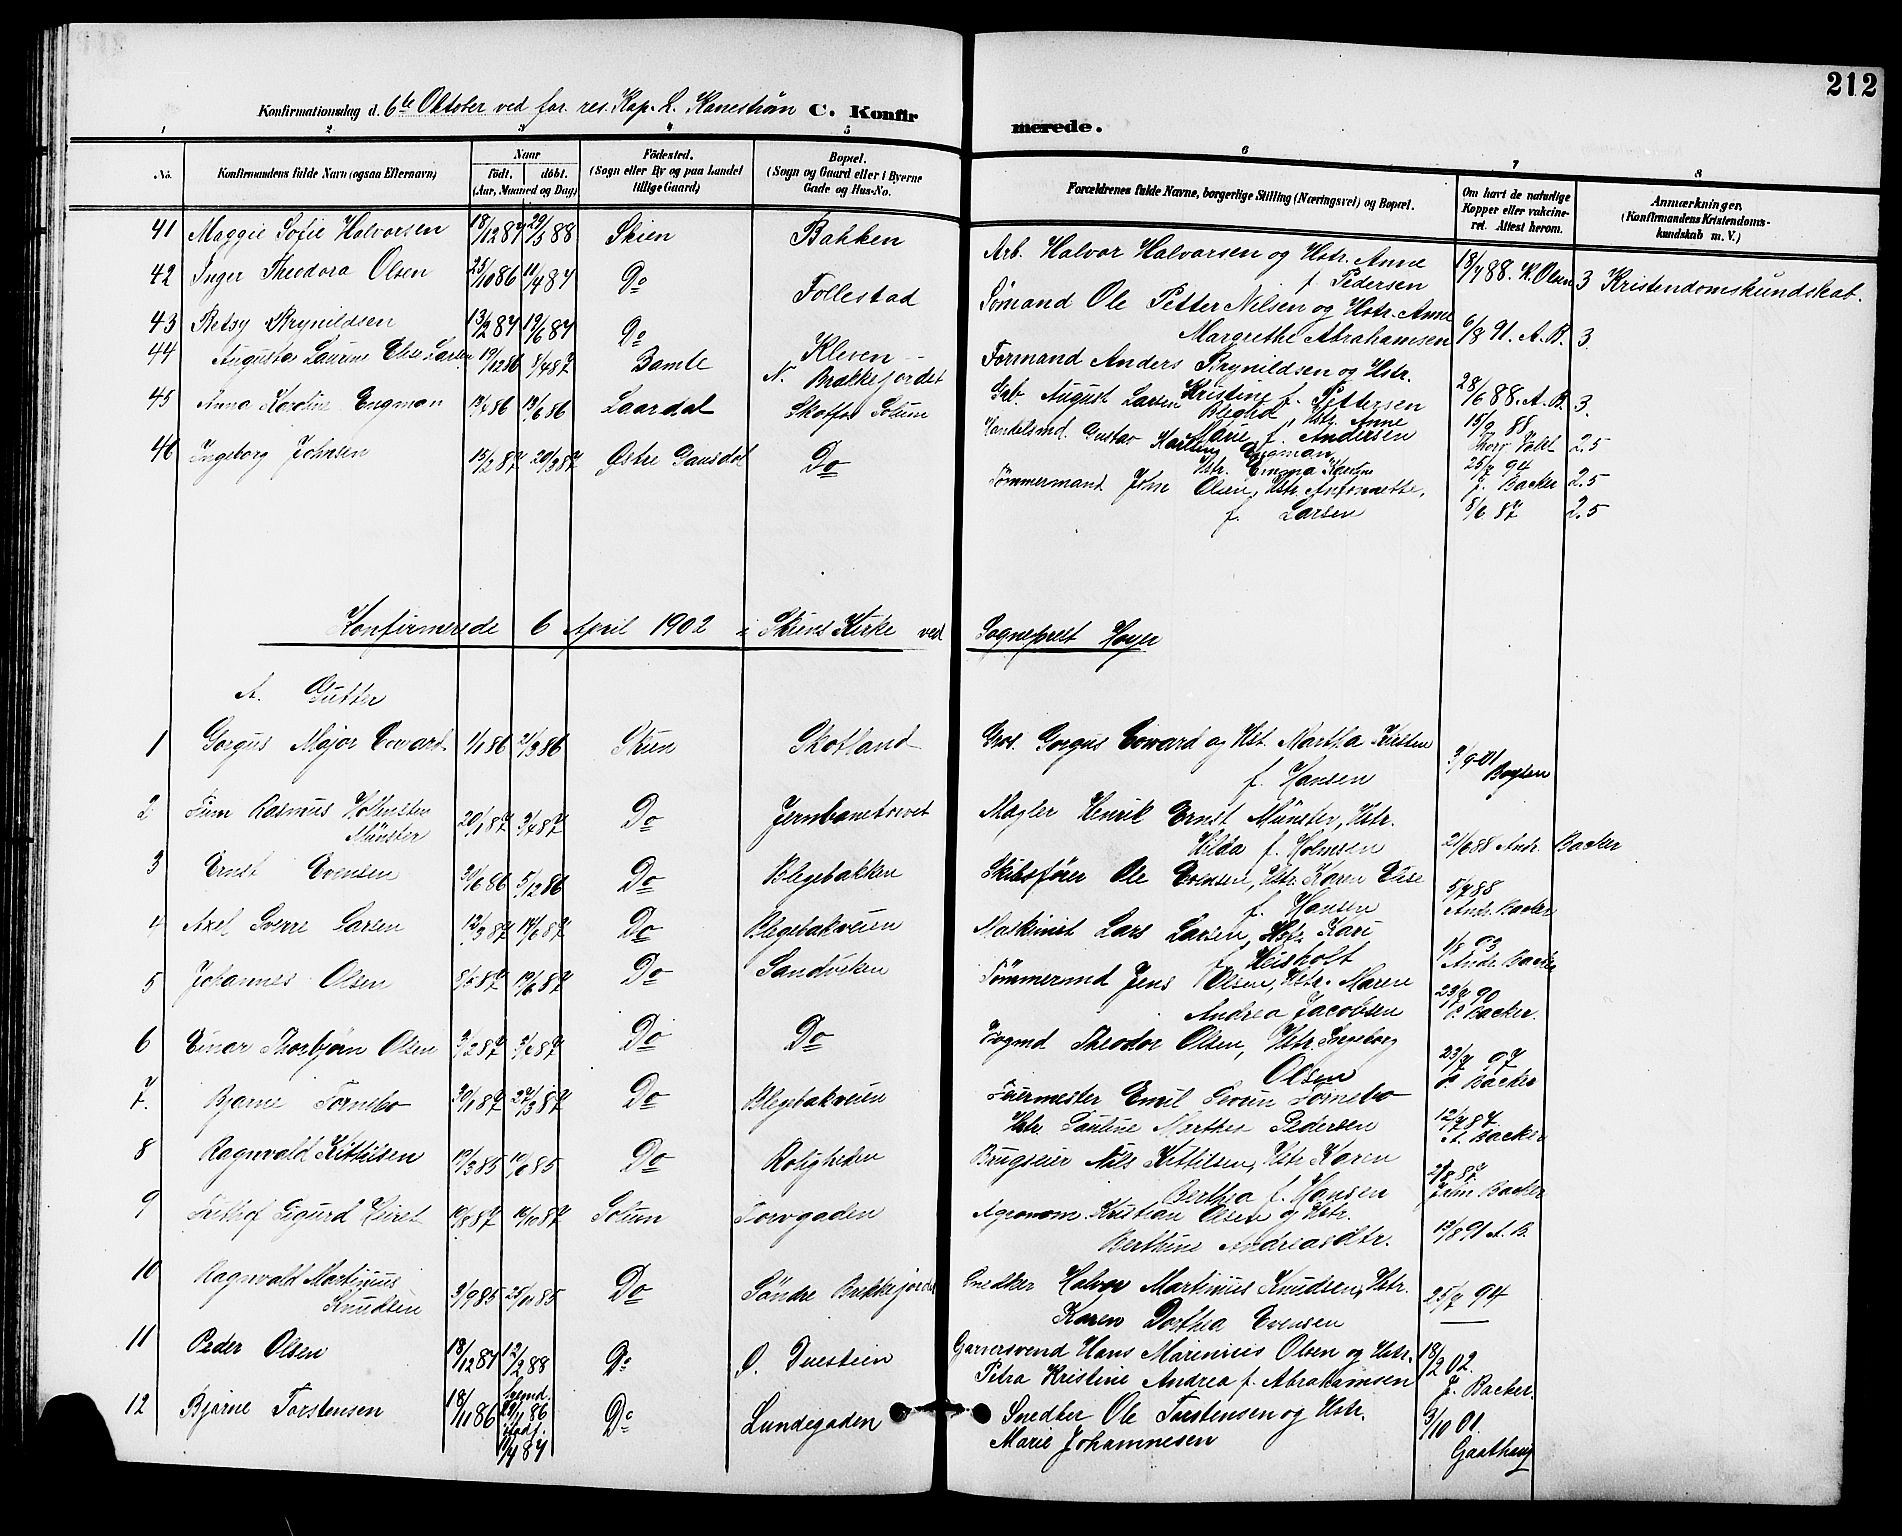 212
Konfirmationsdag d. 6te Oktober ved for. res. Kap. L. Kanestrøm C. Konfir merede.
1 2 3 4 5 6 7 8
No. Konfirmandens fulde Navn (ogsaa Efternavn) Naar født. døbt. (Aar, Maaned og Dag) Fødested. (Sogn eller By og paa Landet tillige Gaard) Bopæl. (Sogn og Gaard eller i Byerne Gade og Hus-No. Forældrenes fulde Navne, borgerlige Stilling (Næringsvei) og Bopæl. Om havt de naturlige Kopper eller vakcineret. Attest herom. Anmærkninger. (Konfirmandens Kristendomskundskab m. V.)
41 Maggie Sofie Halvorsen 18/12 87 29/3 88 Skien Bakken Arb. Halvor Halvorsen og Hstr. Anne
f Pedersen 18/7 88. K. Olsen 3 Kristendomskundskab.
42 Inger Theodora Olsen 25/10 86 11/4 87 Do Follestad Sømand Ole Petter Nilsen og Hstr. Anne
Margrethe Abrahamsen 6/8 91. A. B. 3.
43 Betsy Brynildsen 13/2 87 19/6 87 Do Kleven Formand Anders Brynildsen og Hstr.
Kristine f. Pettersen 28/6 88. A. B. 3.
44 Augusta Laurine Larsen 19/12 86 8/4 87 Bamle N. Brækkejordet Grb. August Larsen Hstr. Anne
Marie f. Andersen 15/9 88 2.5
45 Anna Karoline Engman 13/6 86 Laardal Skotfos Solum Handelsmd. Gustav Engman
Hstr. Emma 25/7 94 J. Backer 2.5
46 Ingeborg Johnsen 15/2 87 20/3 87 Østre Gausdal Do Tømmermand John Olsen, Hstr. Antonette,
f. Larsen 8/6 87 2.5
Konfirmerede 6 April 1902 i Skiens Kirke ved Sogneprest Hoyer
A. Gutter
1 Gorgus Major Coward 1/1 86 21/3 86 Skien Skotland Gros. Gorgus Coward og Hst. Martha Kirsten
f. Hansen 3/9-01 Boysen
2 Finn Rasmus
Münster 20/1 87 3/4 87 Do Jernbanetorvet Mægler Henrik Ernst Münster, Hstr.
Hilda f. Holmsen 21/6 88 Andr. Backer
3 Ernst Evensen 30/6 86 5/12 86 Do Blegebakken Skibsfører Ole Evensen, Hstr. Karen Elise
f. Hansen 5/7 88 Andr. Backer
4 Axel Sverre Larsen 12/3 87 19/6 87 Do Blegebakveien Maskinist Lars Larsen, Hstr. Kari
f. Heisholt 1/8 93 Andr. Backer
5 Johannes Olsen 8/5 87 19/6 87 Do Sandviken Tømmermd Jens Olsen, Hstr. Maren
Andrea Jacobsen 23/7 90 P. Backer.
6 Einar Thorbjørn Olsen 3/2 87 3/6 87 Do Do Theodor Olsen, Hstr. Ingeborg
Olsen 23/7 97 P. Backer
7. Bjarne Tornebo 30/1 87 27/3 87 Do Blegebakveien Emil Tornebo
Hstr. Pauline Marthea Pedersen 12/7 87 A. Backer
8 Ragnvald Kittilsen 19/3 85 10/6 85 Do Roligheden Brugseier Nils Kittilsen, Hstr Karen
Berthea f. Hansen 2/8 87 John Backer
9 Frithof Sigurd 10/8 87 16/10 87 Solum Torvgaden Agronom Kristian Olsen og Hstr.
Berthine Andreasdtr. 19/8 91 A. B.
10 Ragnvald Martinius
Knudsen 3/9 85 25/10 85 Do Søndre Brekkejordet Snedker Halvor Martinius Knudsen, Hstr.
Karen Dorthea Evensen 25/7 94
11 Peder Olsen 18/12 87 12/2 88 Do Ø. Duestien Garversvend Hans Marenius Olsen og Hstr.
Petra Kristine Andrea f. Abrahamsen 18/2 02. J. Backer.
12 Bjarne Torstensen 18/11 86 hjemd. 29/11 86 stadf. 11/4 87 Do Lundegaden Snedker Ole Torstensen og Hstr.
Marie Johannesen 3/10 01. Gaathaug